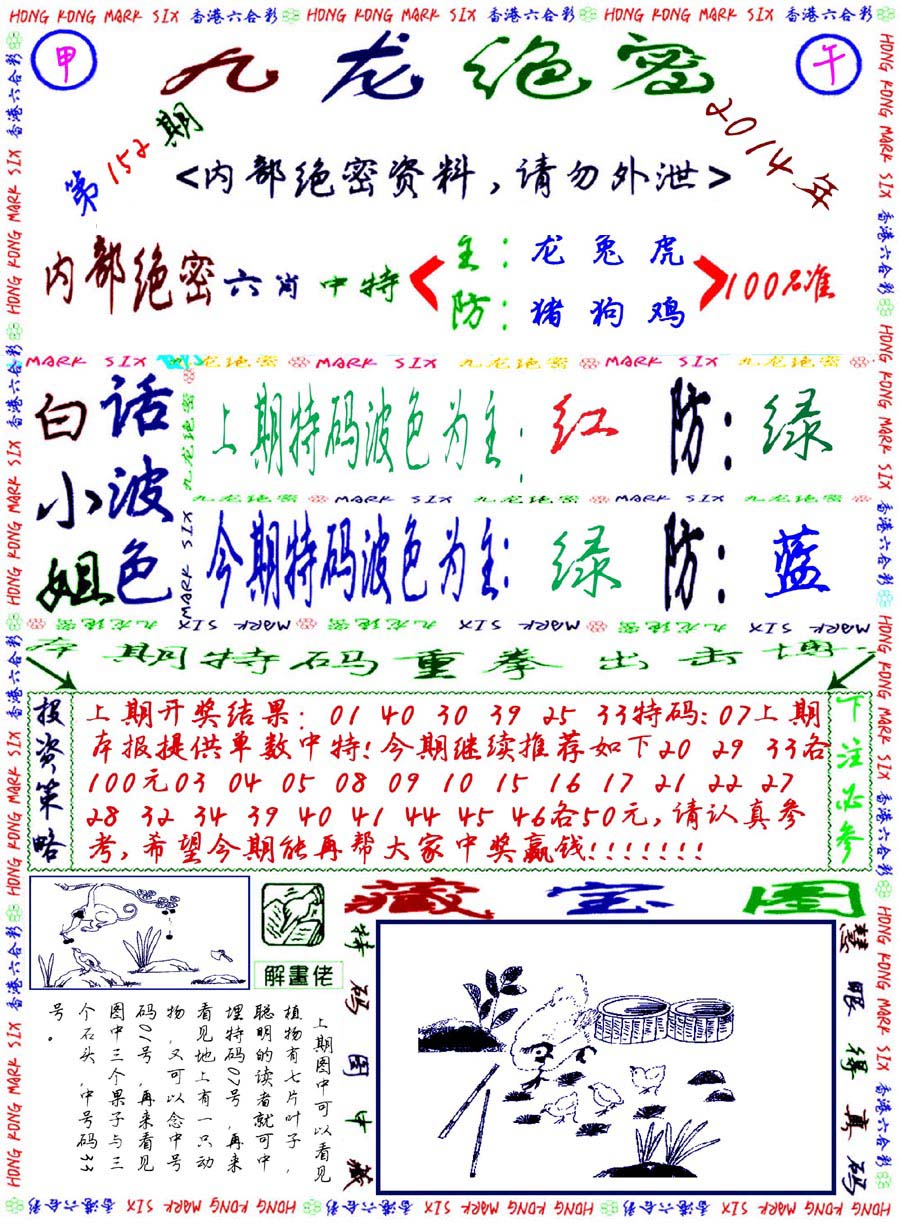 HONG KONG MARK SIX 香港六合彩 HONG KONG MARK SIX 香港六合彩 HONG KONG MARK SIX 香港六合彩
甲 九龙绝密 午
第152期 2014年
<内部绝密资料,请勿外泄>
内部绝密六肖中特
主:龙兔虎
防:猪狗鸡
100%准
MARK SIX 九龙绝密 MARK SIX 九龙绝密 MARK SIX 九龙绝密
白小姐
话波色
上期特码波色为主:红 防:绿
九龙绝密 MARK SIX 九龙绝密 MARK SIX 九龙绝密
今期特码波色为主:绿 防:蓝
九龙绝密 MARK SIX 九龙绝密 MARK SIX 九龙绝密 MARK SIX
本期特码重拳出击博一
投资策略
上期开奖结果: 01 40 30 39 25 33特码:07上期
本报提供单数中特!今期继续推荐如下20 29 33各
100元03 04 05 08 09 10 15 16 17 21 22 27
28 32 34 39 40 41 44 45 46各50元,请认真参
考,希望今期能再帮大家中奖赢钱!!!!!!!
下注必参
解畫佬
上期图中可以看见
植物有七片叶子,
聪明的读者就可中
埋特码07号,再来
看见地上有一只动
物,又可以念中号
码01号,再来看见
图中三个果子与三
个石头,中号码33
号。
藏宝图
特码图中藏
慧眼得真码
HONG KONG MARK SIX 香港六合彩 HONG KONG MARK SIX 香港六合彩 HONG KONG MARK SIX 香港六合彩